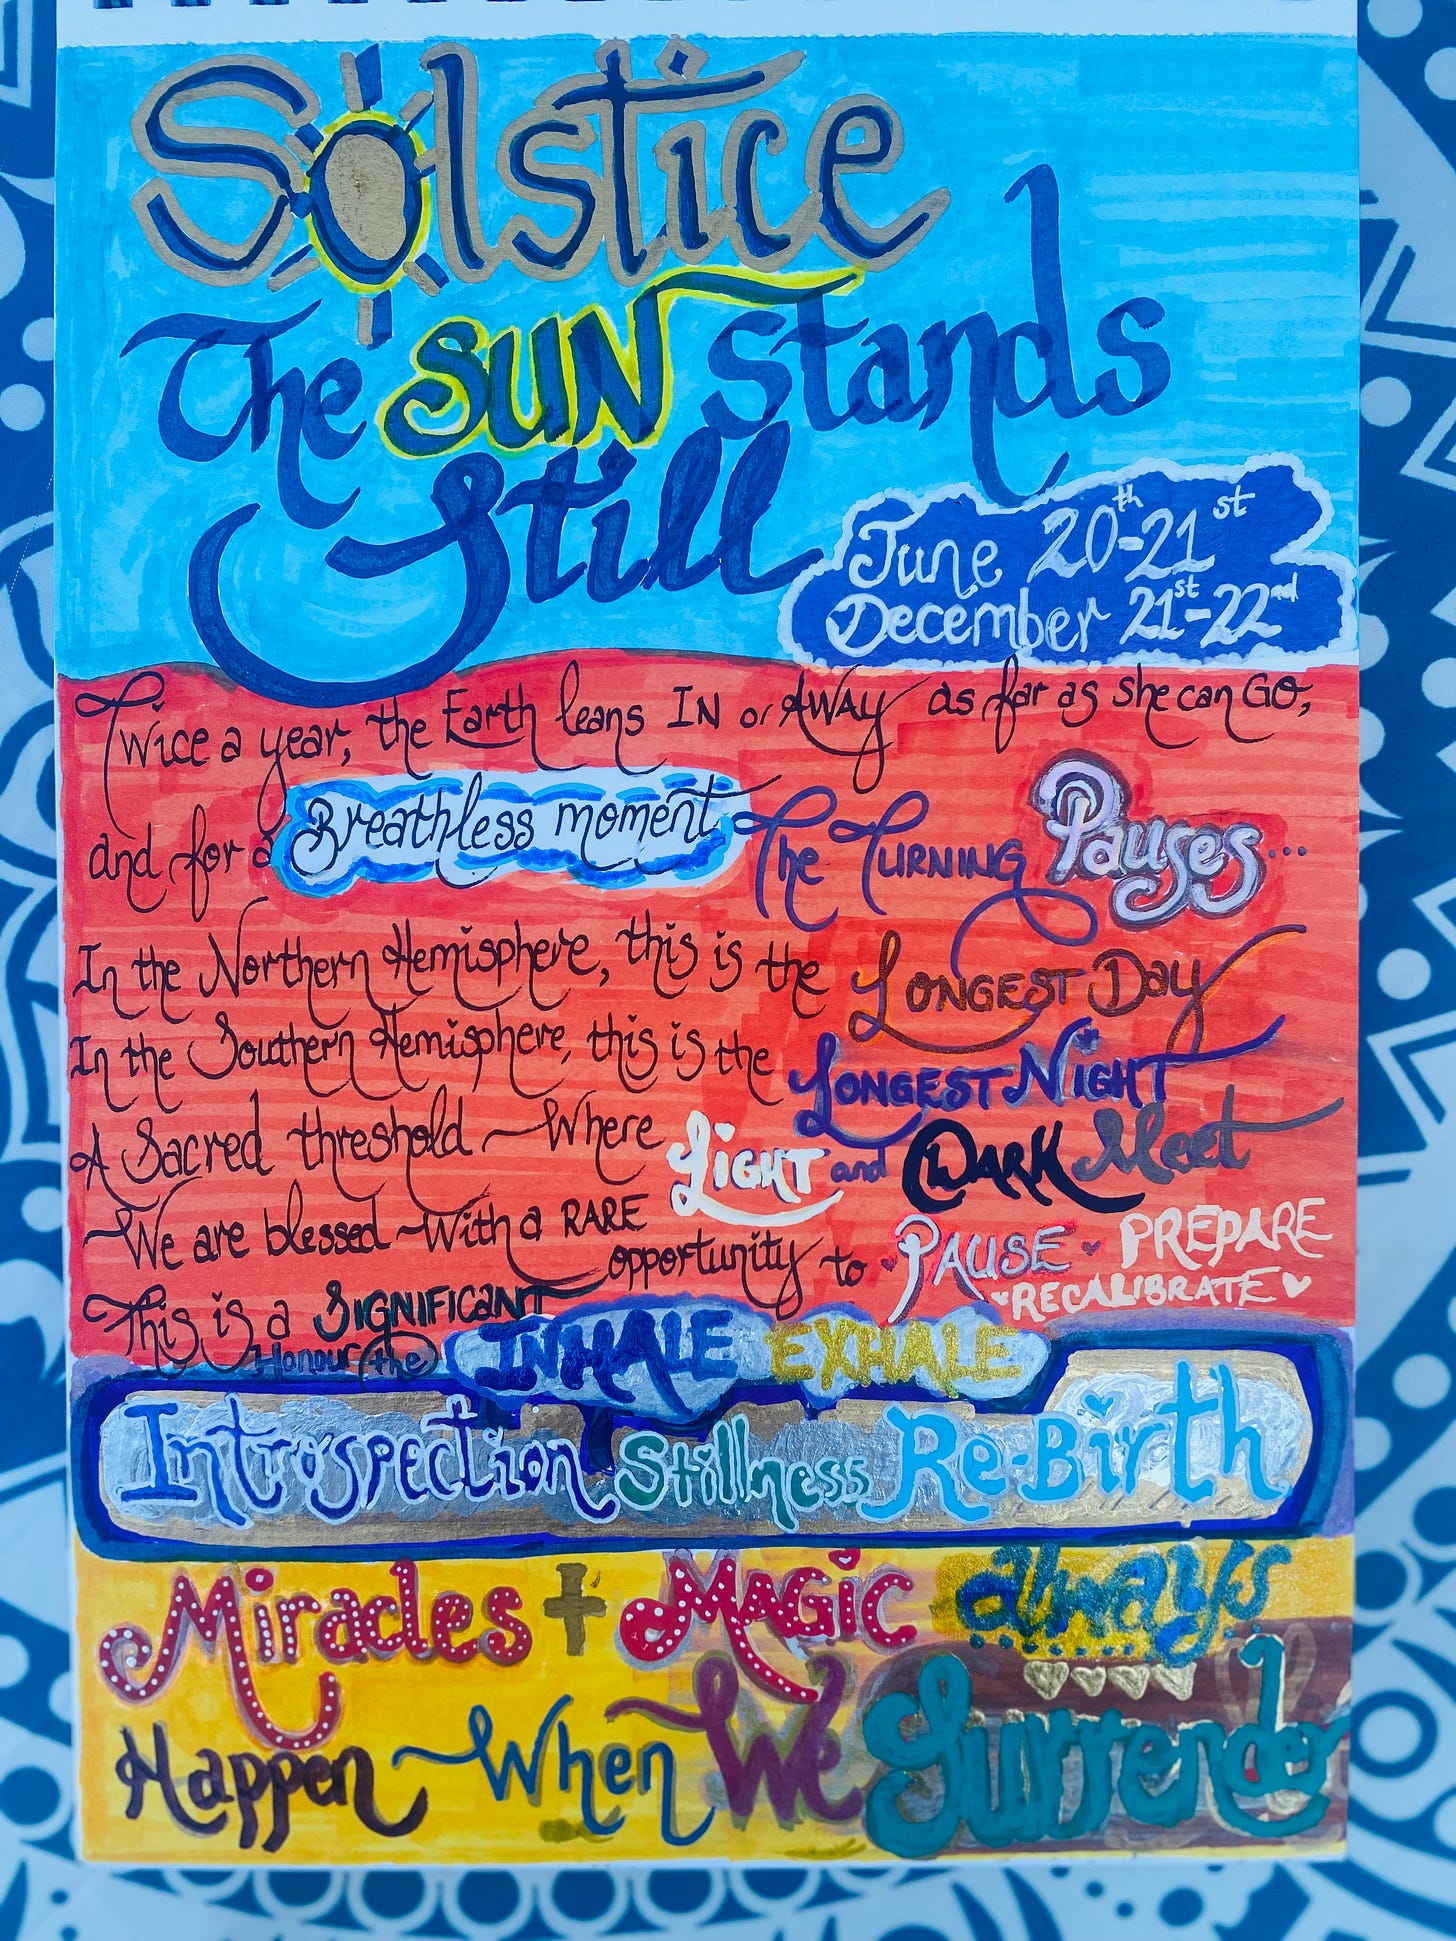 Solstice
The SUN stands
Still
June 20th-21st
December 21st-22nd
Twice a year, the Earth leans IN or AWAY as far as she can GO,
and for a Breathless moment The TURNING Pauses...
In the Northern Hemisphere, this is the LONGEST Day
In the Southern Hemisphere, this is the LONGEST NIGHT
A Sacred threshold Where LIGHT and DARK Meet
We are blessed With a RARE opportunity to PAUSE PREPARE
RECALIBRATE
This is a SIGNIFICANT INHALE EXHALE
Honour the
Introspection Stillness Re-Birth
Miracles + MAGIC always
Happen When We Surrender